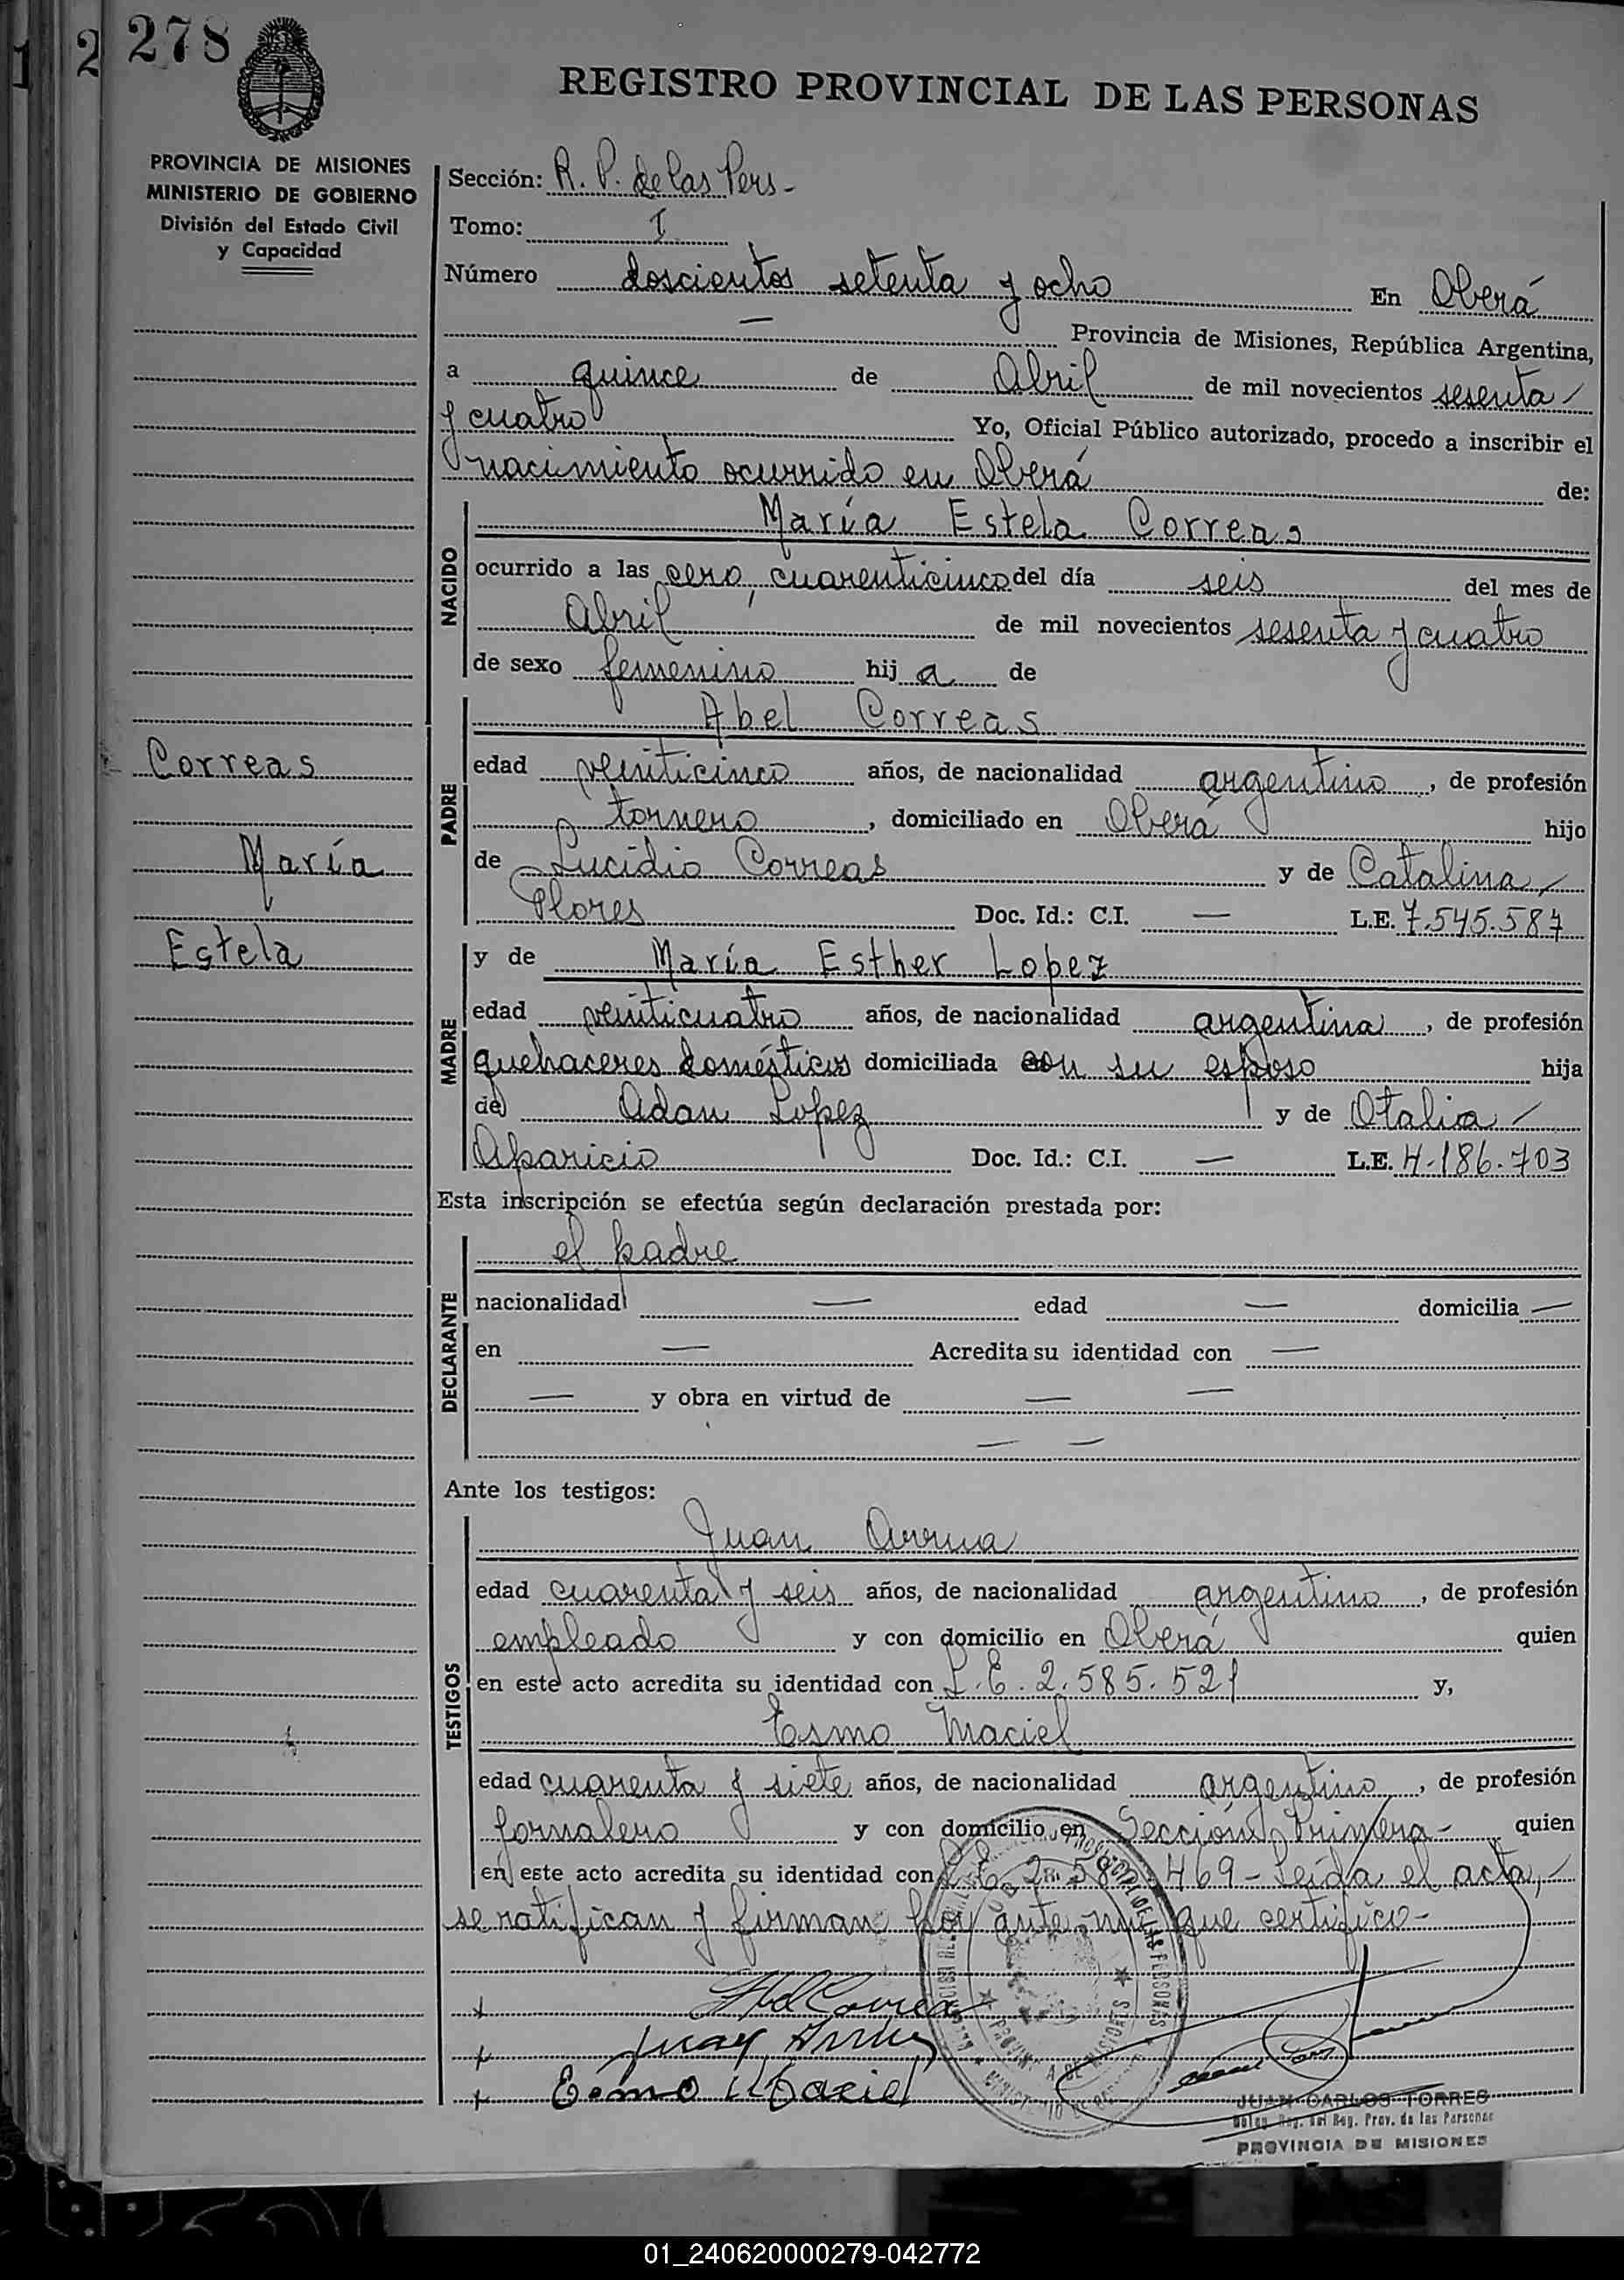 1 2 278
REGISTRO PROVINCIAL DE LAS PERSONAS
PROVINCIA DE MISIONES
MINISTERIO DE GOBIERNO
División del Estado Civil
y Capacidad
Sección: R. P. de las Pers-
Tomo: I
Número doscientos setenta y ocho En Oberá
— Provincia de Misiones, República Argentina,
a quince de Abril de mil novecientos sesenta
y cuatro Yo, Oficial Público autorizado, procedo a inscribir el
nacimiento ocurrido en Oberá de:
NACIDO
María Estela Correas
ocurrido a las cero, cuarenticinco del día seis del mes de
Abril de mil novecientos sesenta y cuatro
de sexo femenino hij a de
PADRE
Abel Correas
Correas
María
Estela
edad veinticinco años, de nacionalidad argentino, de profesión
tornero, domiciliado en Oberá hijo
de Lucidio Correas y de Catalina
Flores Doc. Id.: C.I. — L.E. 7.545.587
MADRE
y de María Esther Lopez
edad veinticuatro años, de nacionalidad argentina, de profesión
quehaceres domésticos domiciliada con su esposo hija
de Adan Lopez y de Otalia
Aparicio Doc. Id.: C.I. — L.E. 4.186.703
Esta inscripción se efectúa según declaración prestada por:
DECLARANTE
el padre
nacionalidad — edad — domicilia —
en — Acredita su identidad con —
— y obra en virtud de — —
— —
Ante los testigos:
TESTIGOS
Juan Arrua
edad cuarenta y seis años, de nacionalidad argentino, de profesión
empleado y con domicilio en Oberá quien
en este acto acredita su identidad con L.E. 2.585.521 y,
Esmo Maciel
edad cuarenta y siete años, de nacionalidad argentino, de profesión
jornalero y con domicilio en Sección Primera- quien
en este acto acredita su identidad con L.E. 2.58 469- Leída el acta,
se ratifican y firman por ante mí que certifico-
Abel Correas
Juan Arrua
Esmo Maciel
JUAN CARLOS TORRES
Reg. del Reg. Prov. de las Personas
PROVINCIA DE MISIONES
01_240620000279-042772